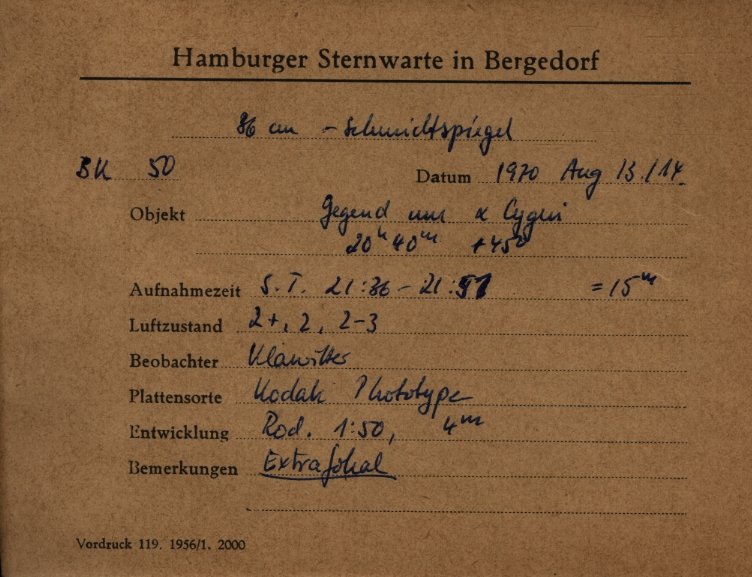 Hamburger Sternwarte in Bergedorf
36 cm - Schmidtspiegel
BK 50 Datum 1970 Aug 13./14.
Objekt Gegend um α Cygni
20ʰ 40ᵐ +45°
Aufnahmezeit S.T. 21:36 - 21:51 = 15ᵐ
Luftzustand 2+, 2, 2-3
Beobachter Klawitter
Plattensorte Kodak Phototype
Entwicklung Rod. 1:50, 4ᵐ
Bemerkungen Extrafokal
Vordruck 119. 1956/1. 2000